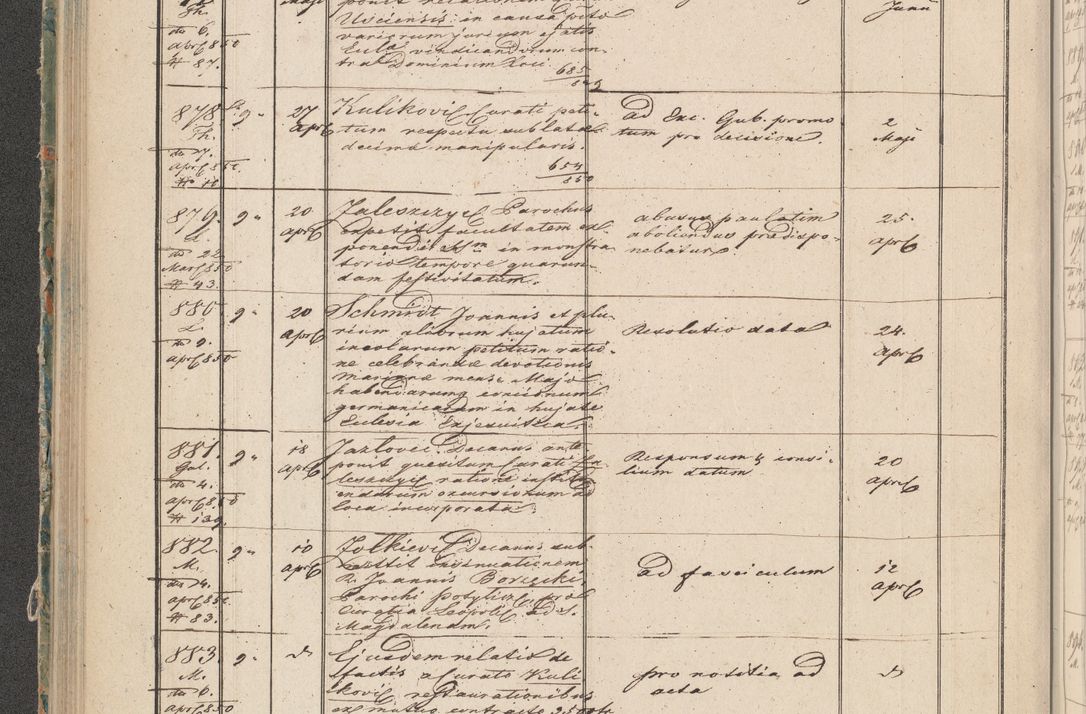 Usciensis in causa peto
variorum jurium ejatis
Eccla vindicandorum con-
tra Dominium Loci
685
de 6.
Apr 850
# 87.
Junii
878.
Th.
de 7.
Apr 85
9 "
27
Apr
Kulikovi Curati peti-
tum respectu sublatae
decimae manipularis.
654
850
ad Exc. Gub. promo
tum pro decisione.
2
Maji
879.
de 22
Mart 850
# 43.
9 "
20
Apr
Zaleszczy Parochus
expetit facultatem ex-
ponendi in monstra
torio tempore quarun-
dam festivitatum.
abusus paulatim
aboliendus praedispo-
nebatur.
25.
Apr
880
L.
de 9.
Apr 850
9 "
20
Apr
Schmidt Joannis et plu-
rium aliorum hujatum
incolarum petitum ratio-
ne celebrandae devotionis
Marianae mense Majo
habendarumq concionum
germanicarum in hujate
Ecclesia Exjesuitica.
Resolutio data
24.
Apr
881.
Gal.
de 4.
Apr 850
# 139.
9 "
18
Apr
Jazlovec. Decanus ante-
ponit quesitum Curati
ratione institu
endarum excursionum ad
loca incorporata.
Responsum & consi-
lium datum
20
Apr
882.
M.
de 4.
Apr 85
# 83.
9 "
10
Apr
Zolkievi Decanus sub-
sternit insinuationem
R. Joannis Borzecki
Parochi potylic pro
Curatia Leopoli ad S.
Magdalenam.
ad fasciculum
12
Apr
883.
M.
de 6.
Apr 850
9 "
Ejusdem relatio de
factis a Curato Kuli
kovi restaurationibus
ex mutuo contracto
pro notitia ad
acta